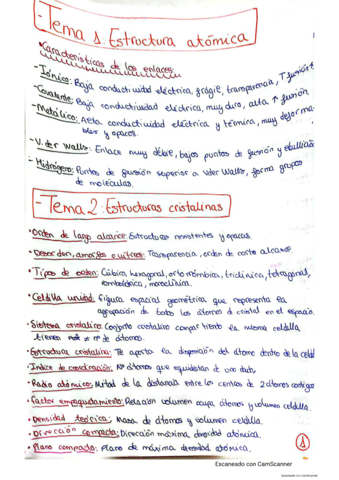 -Tema 1. Estructura atómica
Características de los enlaces:
-Iónico: Baja conductividad eléctrica, frágil, transparencia, ↑ fusión
-Covalente: Baja conductividad eléctrica, muy duro, alta ↑ fusión
-Metálico: Acta conductividad eléctrica y térmica, muy deforma-
ble y opacos.
-V. der Walls: Enlace muy débil, bajos puntos de fusión y ebullición
- Hidrógeno: Puntos de fusión superior a Vder Walls, forma grupos
de moléculas.
-Tema 2: Estructuras cristalinas
• Orden de largo alcance: Estructuras resistentes y opacas.
• Desorden, amorfos o vítreos: Transparencia, orden de corto alcance.
• Tipos de eden: Cúbica, hexagonal, ortorrómbica, triclínica, tetragonal,
romboédrica, monoclínica.
• Celdilla unidad: Figura espacial geométrica que representa la
agrupación de todos los átomos d cristal en el espacio.
• Sistema cristalino: Conjunto cristalino compartiendo la misma celdilla
tienen ≠ nº de átomos.
• Estructura cristalina: Te aporta la disposición del átomo dentro de la celdi
• Índice de coordinación: Nº átomos que equidistan de uno dado,
• Radio atómico: Mitad de la distancia entre los centros de 2 átomos contiguos
• Factor empaquetamiento: Relación volumen ocupa átomos y volumen celdilla.
• Densidad teórica: Masa de átomos y volumen celdilla.
• Dirección compacta: Dirección máxima densidad atómica.
• Plano compacto: Plano de máxima densidad atómica.
1
Escaneado con CamScanner
Escaneado con CamScanner